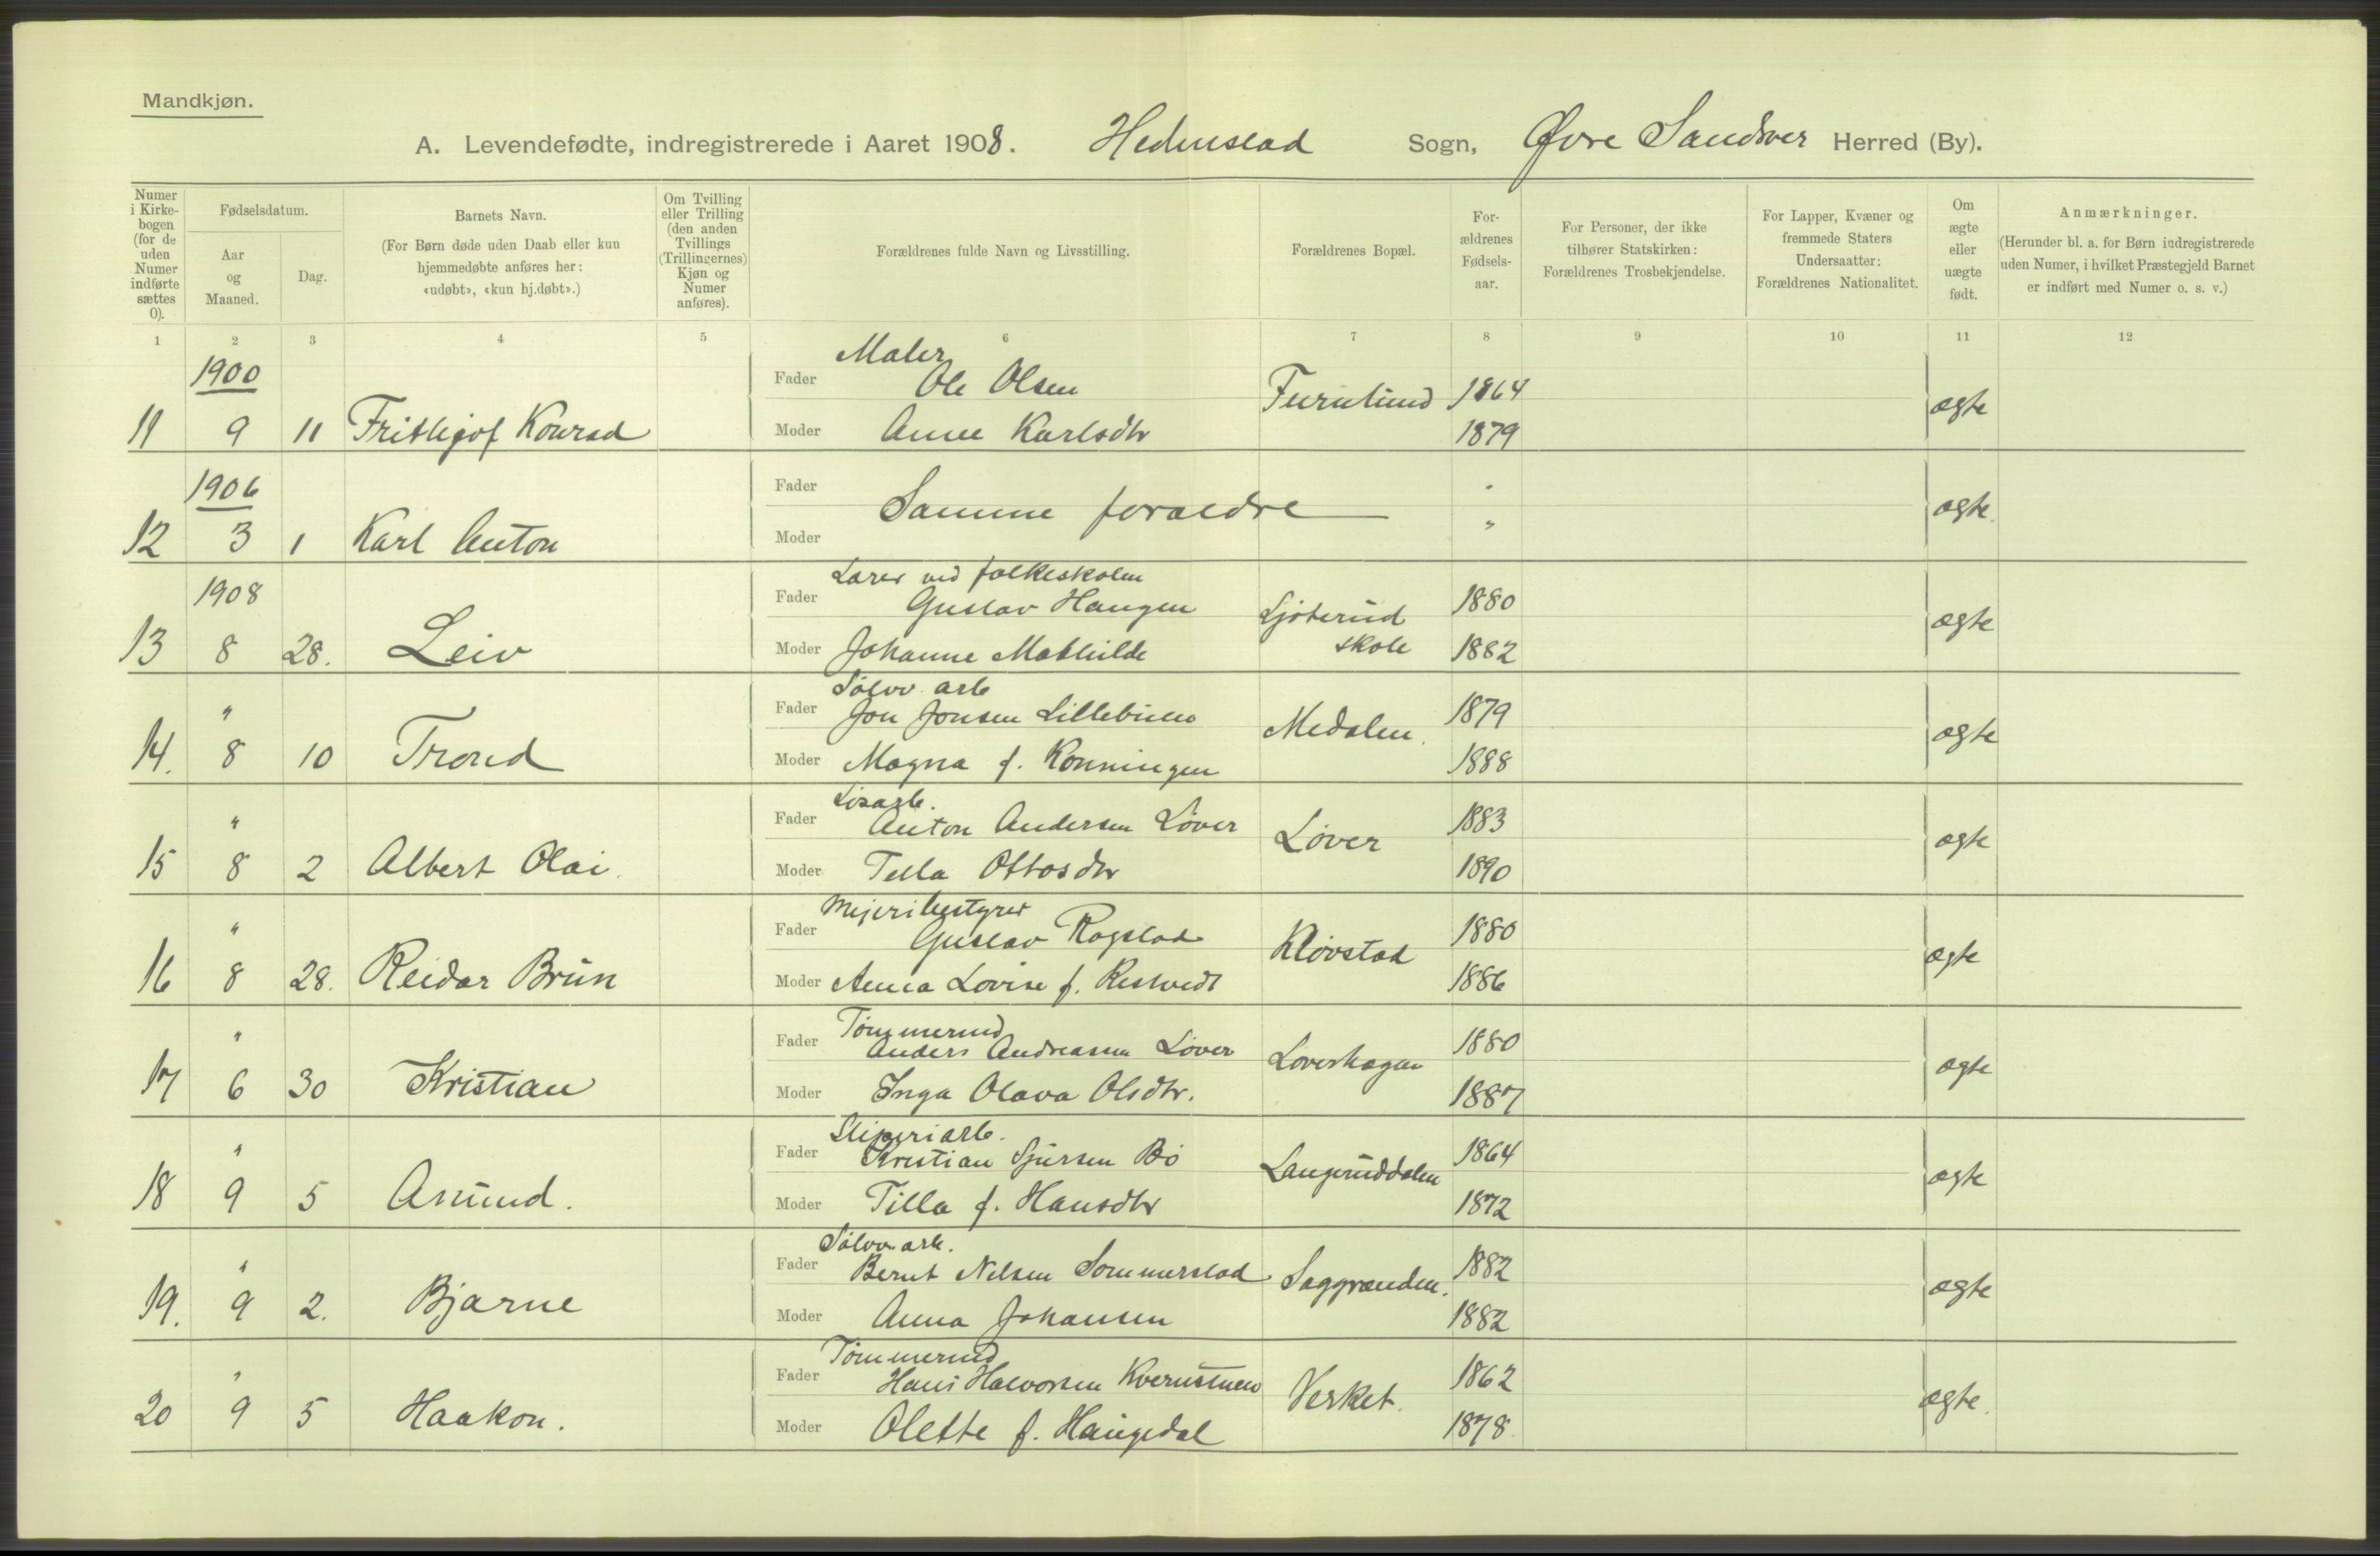 Mandkjøn.
A. Levendefødte, indregistrerede i Aaret 1908. Hedenstad Sogn, Øvre Sandsver Herred (By).
Numer i Kirkebogen (for de uden Numer indførte sættes 0).
Fødselsdatum.
Aar og Maaned.
Dag.
Barnets Navn.
(For Børn døde uden Daab eller kun hjemmedøbte anføres her: «udøbt», «kun hj.døbt».)
Om Tvilling eller Trilling (den anden Tvillings (Trillingernes) Kjøn og Numer anføres).
Forældrenes fulde Navn og Livsstilling.
Forældrenes Bopæl.
Forældrenes Fødselsaar.
For Personer, der ikke tilhører Statskirken: Forældrenes Trosbekjendelse.
For Lapper, Kvæner og fremmede Staters Undersaatter: Forældrenes Nationalitet.
Om ægte eller uægte født.
Anmærkninger.
(Herunder bl. a. for Børn indregistrerede uden Numer, i hvilket Præstegjeld Barnet er indført med Numer o. s. v.)
1 2 3 4 5 6 7 8 9 10 11 12
1900 Maler
Fader Ole Olsen Furulund 1864
11 9 11 Frithjof Konrad Moder Anne Karlsdtr 1879 ægte
1906
Fader Samme foraldre "
12 3 1 Karl Anton Moder " ægte
1908 Lærer ved folkeskolen
Fader Gustav Haugen Ljøterud skole 1880
13 8 28. Leiv Moder Johanne Mathilde 1882 ægte
Sølvv. arb
" Fader Jon Jonsen Lillebuen Medalen. 1879
14. 8 10 Trond Moder Magna f. Konningen 1888 ægte
Løsarb.
" Fader Anton Andersen Løver Løver 1883
15 8 2 Albert Olai. Moder Tella Ottosdtr 1890 ægte
Mejeribestyrer
" Fader Gustav Rogstad Kløvstad 1880
16 8 28. Reidar Brun Moder Anna Lovise f. 1886 ægte
Tømmermd
" Fader Anders Andreassen Løver Løverhagen 1880
17 6 30 Kristian Moder Inga Olava Olsdtr. 1887 ægte
Sliperiarb.
" Fader Kristian Sjursen Bø Langeruddalen 1864
18 9 5 Anund. Moder Tilla f. Hansdtr 1872 ægte
Sølvv. arb.
" Fader Bernt Nilsen Sommerstad Saggrenden. 1882
19. 9 2. Bjarne Moder Anna Johansen 1882 ægte
Tømmermd
" Fader Hans Halvorsen Kvernstuen Verket. 1862
20 9 5 Haakon. Moder Olette f. Haugedal 1878. ægte.